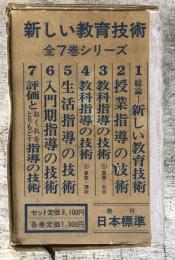 新しい教育技術
全7巻シリーズ
1 総論 新しい教育技術
2 授業指導の技術
3 教科指導の技術 ① 国語・社会
4 教科指導の技術 ② 算数・理科
5 生活指導の技術
6 入門期指導の技術
7 評価とおくれをとりもどす指導の技術
セット定価 9,100円
各巻定価 1,300円
発行
日本標準